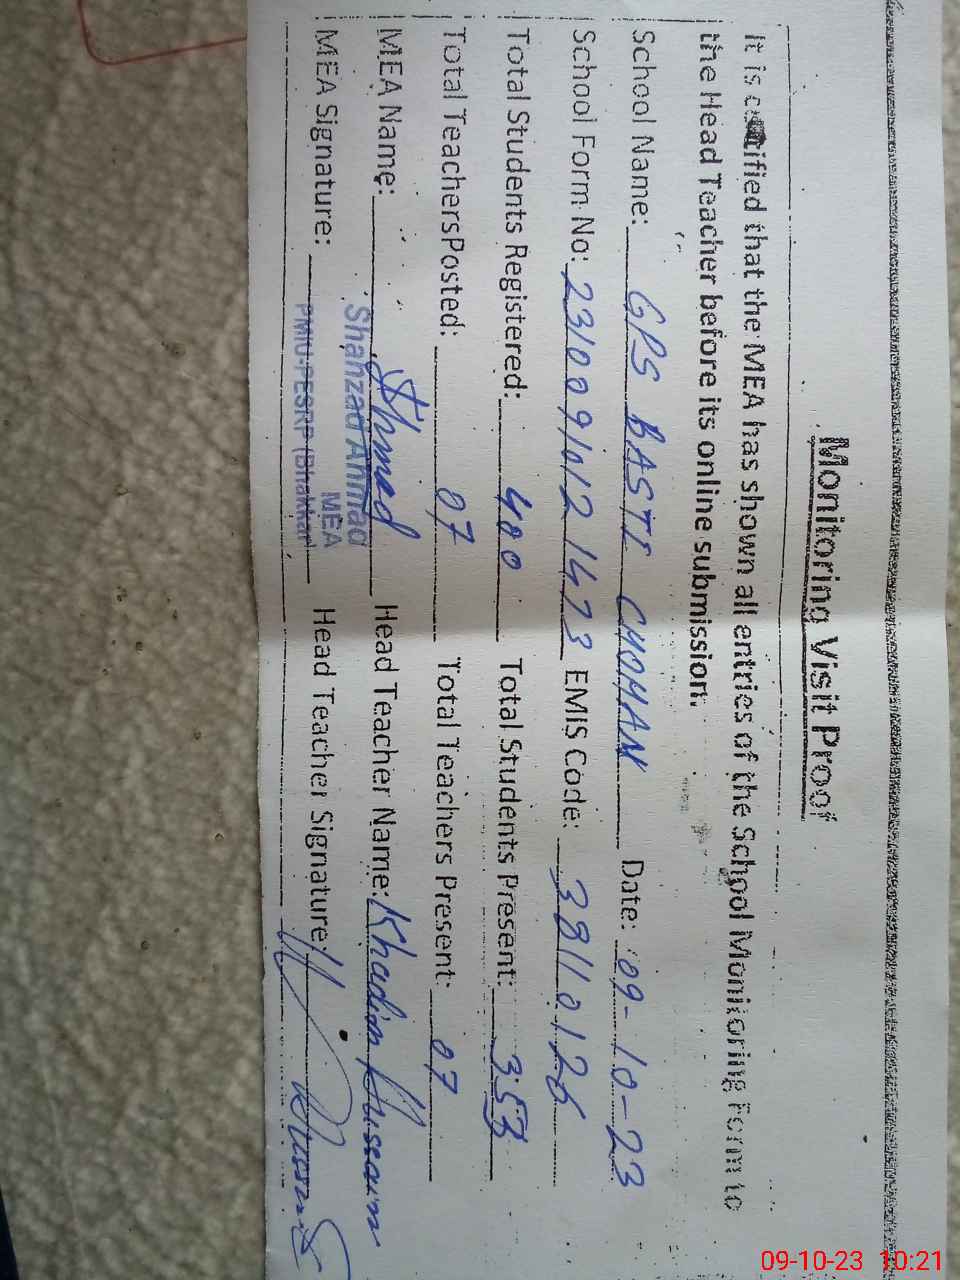 Monitoring Visit Proof
It is certified that the MEA has shown all entries of the School Monitoring Form to
the Head Teacher before its online submission.
School Name: GPS BASTI CHOHAN Date: 09-10-23
School Form No: 2310091012 1473 EMIS Code: 38110126
Total Students Registered: 400 Total Students Present: 353
Total TeachersPosted: 07 Total Teachers Present: 07
MEA Name: Ahmad Head Teacher Name: Khadim Hussain
Shahzad Ahmad
MEA
MEA Signature: Head Teacher Signature:
PMIU-PESRP (Bhakkar)
09-10-23 10:21